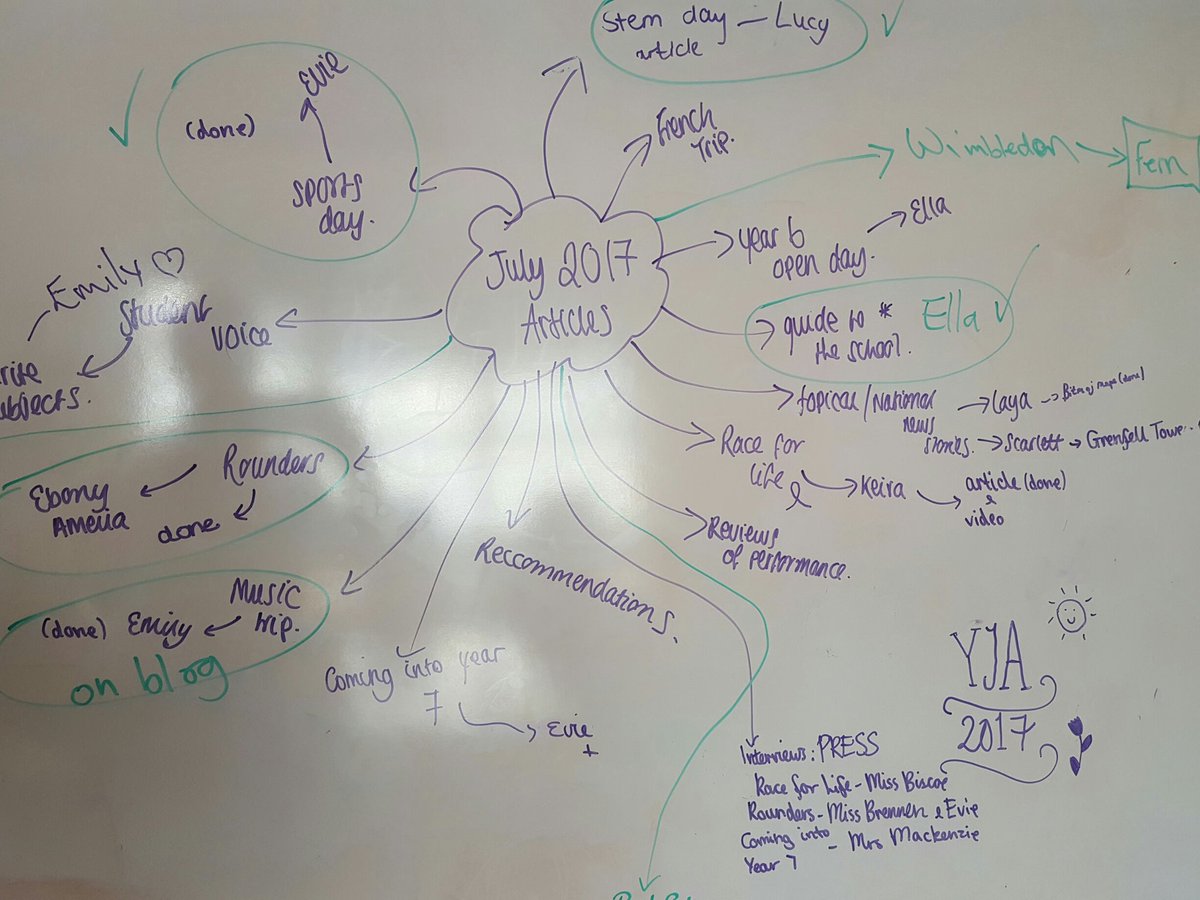 Stem day — Lucy
article
Evie
(done)
SPORTS
day.
French
Trip.
Wimbledon
Fern
July 2017
Articles
year 6
open day.
Ella
guide to *
the school.
Ella
Emily
Student
voice
topical/National
news
stories.
Laya
(done)
Scarlett
Grenfell Tower
Race for
life
Keira
article (done)
&
video
Rounders
Ebony
Amelia
done
Reviews
of performance.
Reccommendations.
Music
trip.
Emily
(done)
on blog
Coming into year
7
Evie
+
YJA
2017
Interviews: PRESS
Race for Life - Miss Biscoe
Rounders - Miss Brennen & Evie
Coming into - Mrs Mackenzie
Year 7